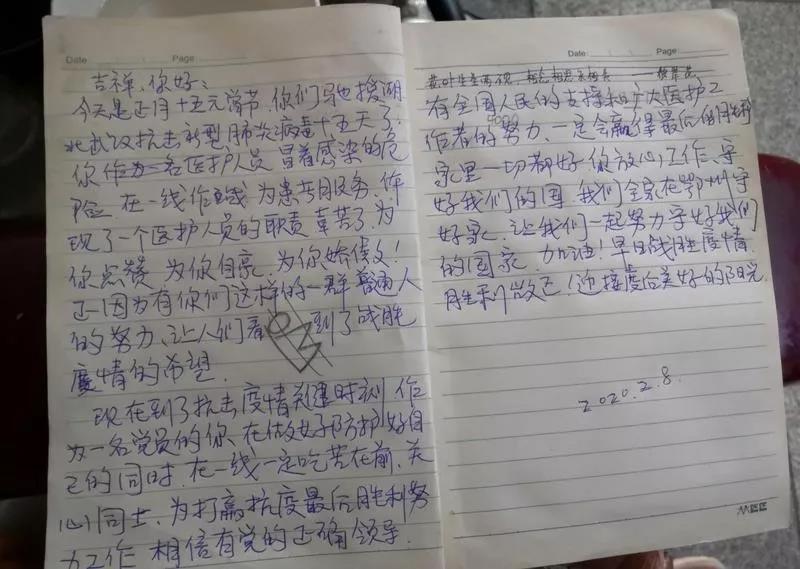 Date: Page:
吉祥、你好:
今天是正月十五元宵节、你们驰援湖
北武汉抗击新型肺炎病毒十五天了,
你作为一名医护人员 冒着感染的危
险、在一线作战 为患者服务、体
现了一个医护人员的职责 辛苦了、为
你点赞 为你自豪、为你骄傲!
正因为有你们这样的一群普通人
的努力、让人们看到了战胜
疫情的希望.
现在到了抗击疫情关键时刻 作
为一名党员的你、在做好防护好自
己的同时、在一线一定吃苦在前、关
心同士、为打赢抗疫最后胜利努
力工作 相信有党的正确领导、
Date: Page:
有全国人民的支援和广大医护工
作者的努力、一定会赢得最后的胜利
家里一切都好 你放心工作、守
好我们的国、我们全家在鄂州守
好家、让我们一起努力守好我们
的国家 加油! 早日战胜疫情、
胜利凯旋! 迎接疫后美好的阳光
2020.2.8.